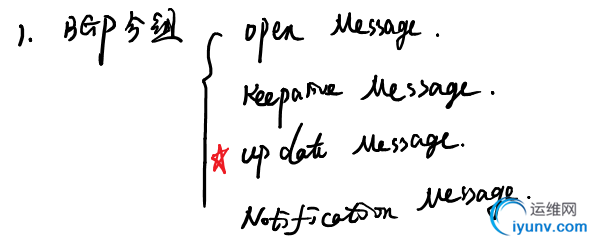 1. BGP分组
open Message.
Keepalive Message.
☆ update Message.
Notification Message.
运维网
iyunv.com